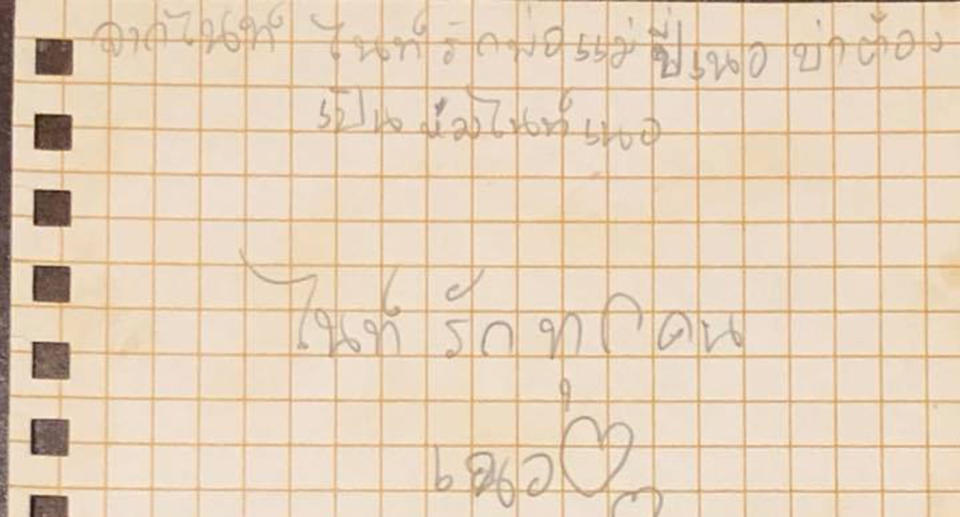 จากไนท์ ไนท์รักพ่อแม่ปี้เนอ บ่าต้อง
เป็น ห่วงไนท์เนอ
ไนท์ รัก ทุกคน
เนอ